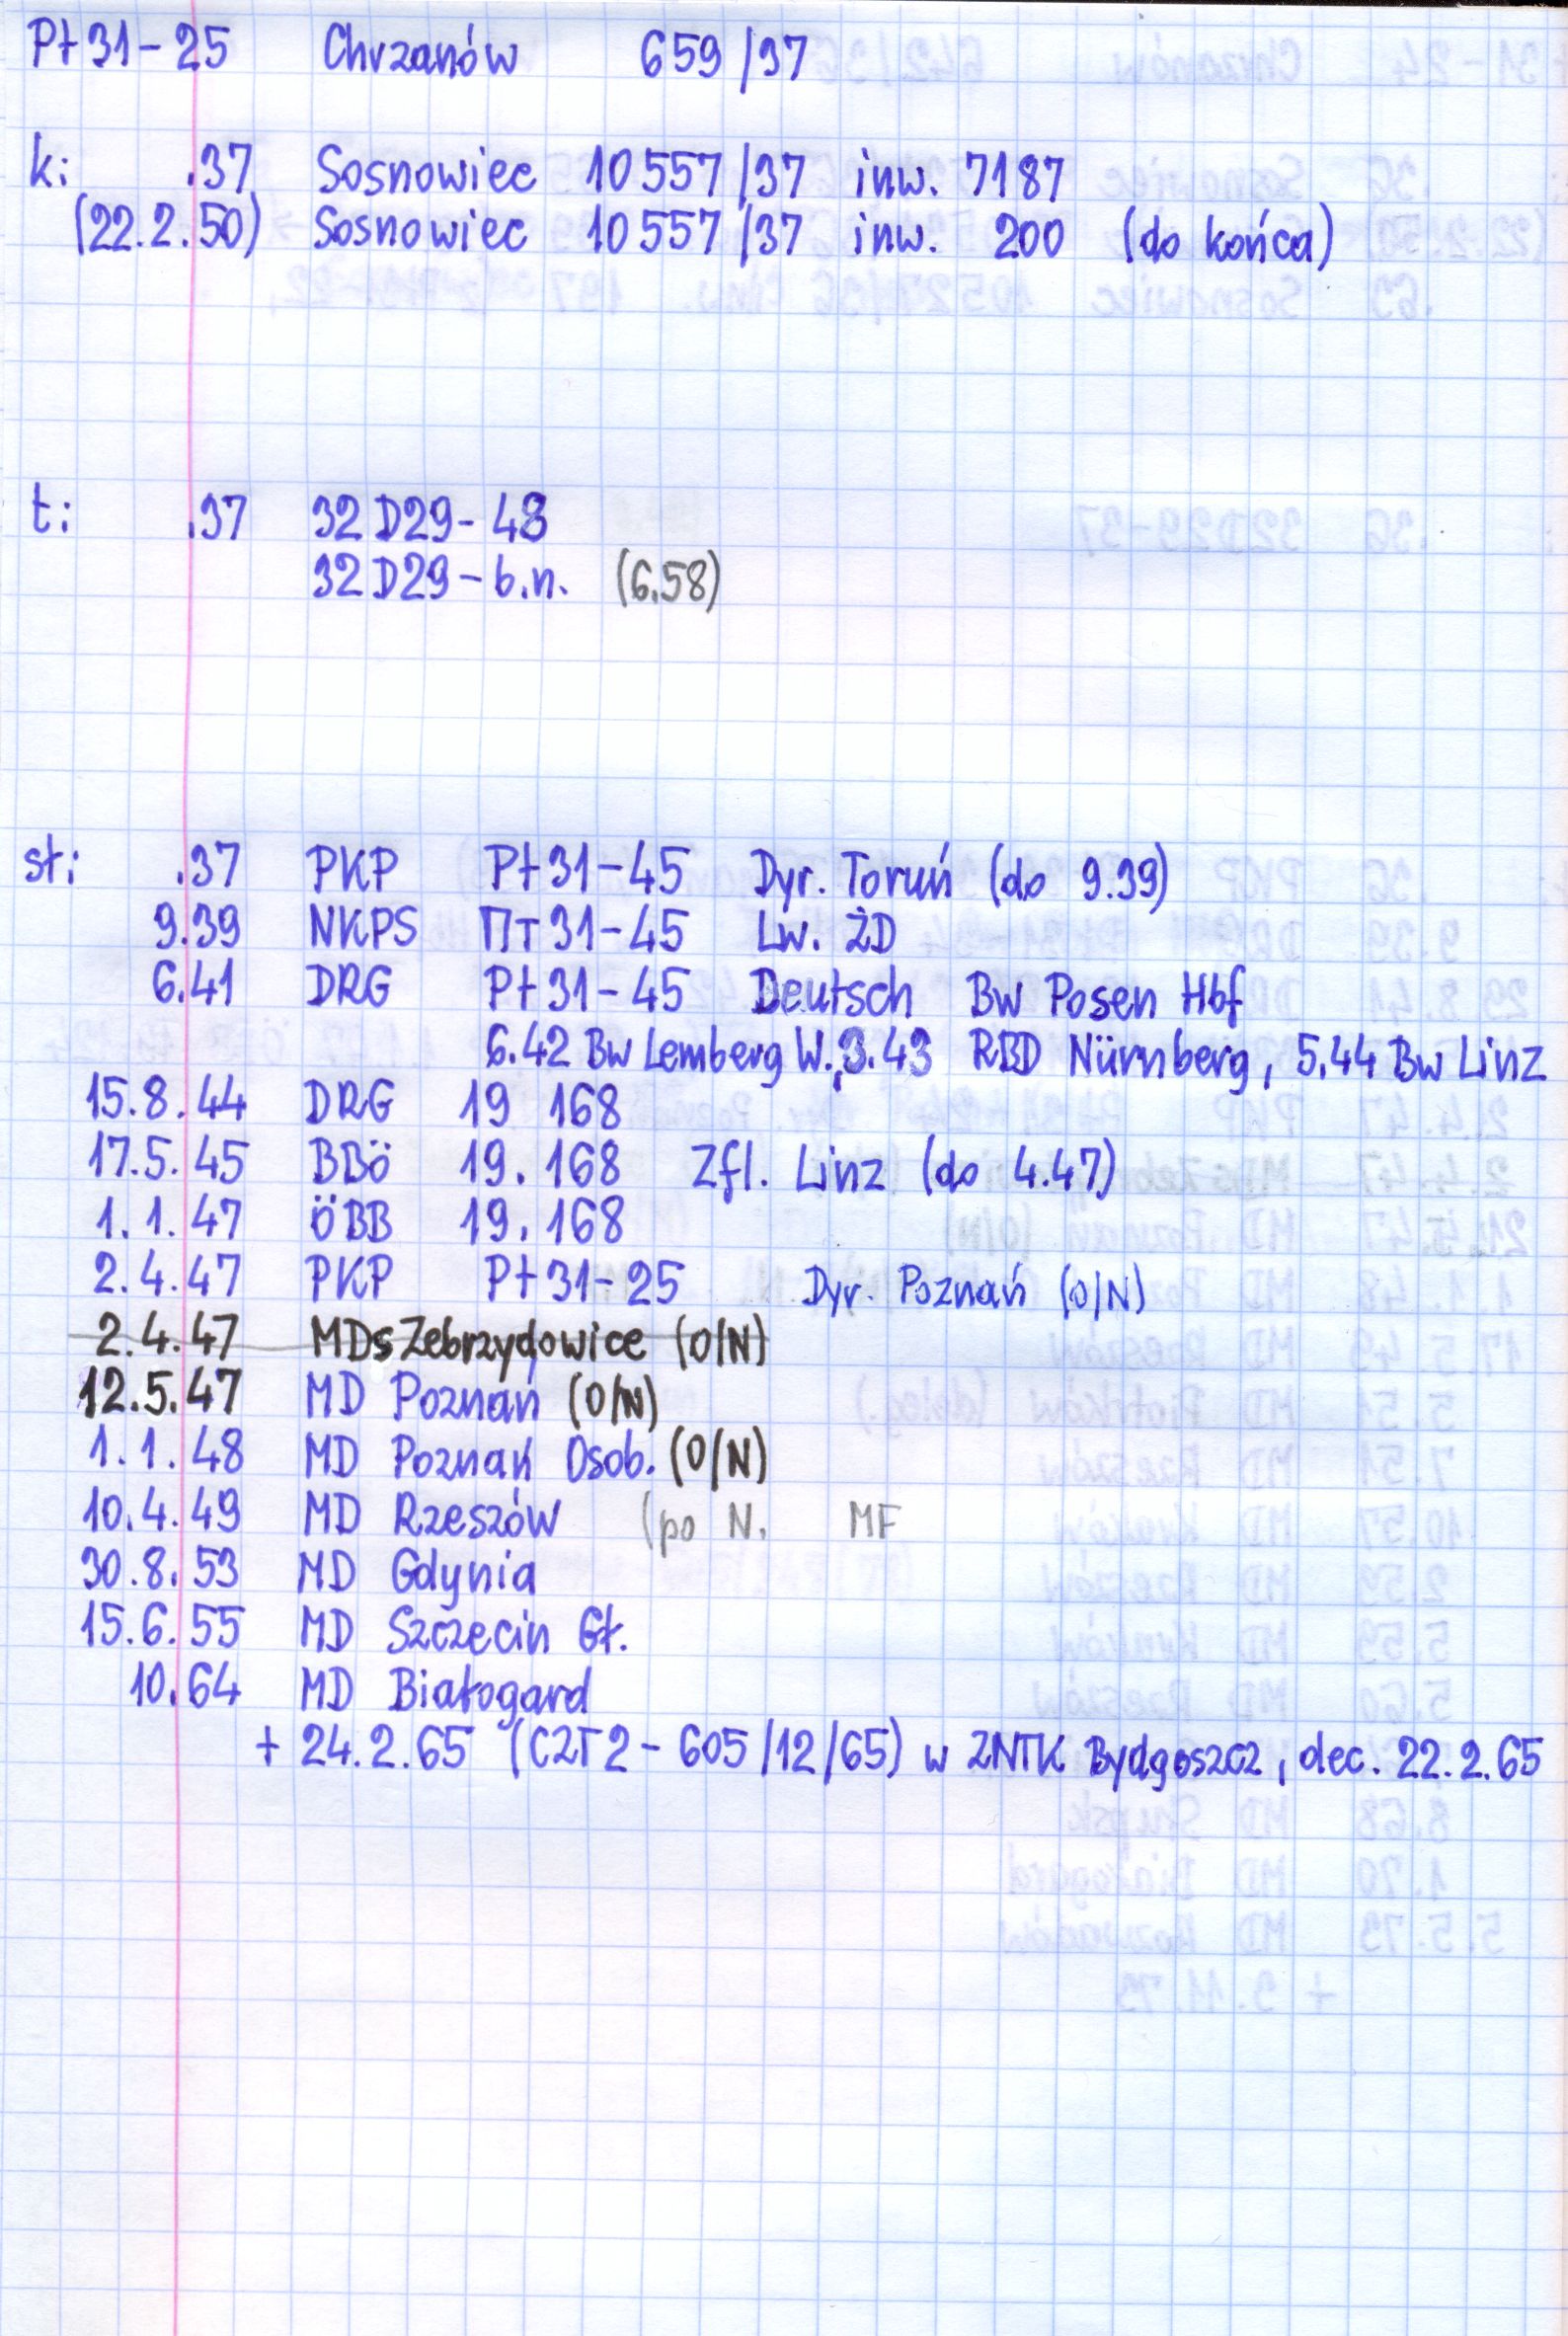 Pt31-25 Chrzanów 659/37
k: .37 Sosnowiec 10557/37 inw. 7187
(22.2.50) Sosnowiec 10557/37 inw. 200 (do końca)
t: .37 32D29-48
32D29-b.n. (6.58)
st: .37 PKP Pt31-45 Dyr. Toruń (do 9.39)
9.39 NKPS Пт31-45 Lw. ŻD
6.41 DRG Pt31-45 Deutsch Bw Posen Hbf
6.42 Bw Lemberg W., 3.43 RBD Nürnberg, 5.44 Bw Linz
15.8.44 DRG 19 168
17.5.45 BBÖ 19.168 Zfl. Linz (do 4.47)
1.1.47 ÖBB 19.168
2.4.47 PKP Pt31-25 Dyr. Poznań (O/N)
2.4.47 MDs Zebrzydowice (O/N)
12.5.47 MD Poznań (O/N)
1.1.48 MD Poznań Osob. (O/N)
10.4.49 MD Rzeszów (po N. MF
30.8.53 MD Gdynia
15.6.55 MD Szczecin Gł.
10.64 MD Białogard
+ 24.2.65 (CZT2-605/12/65) w ZNTK Bydgoszcz, dec. 22.2.65